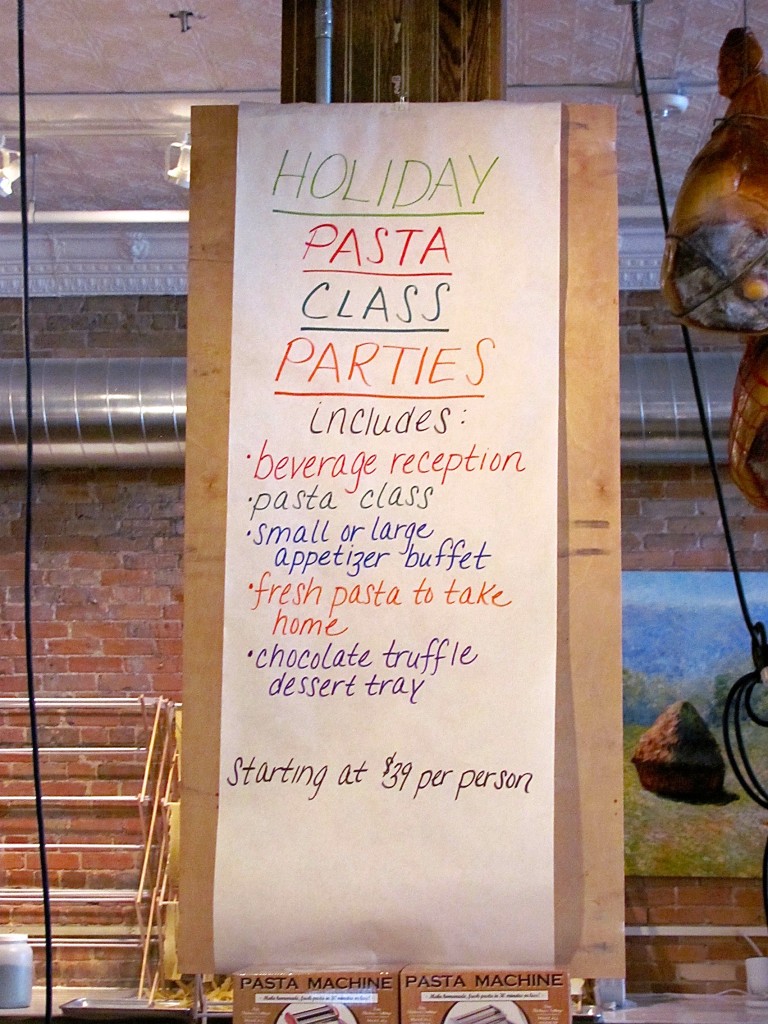 HOLIDAY
PASTA
CLASS
PARTIES
includes:
·beverage reception
·pasta class
·small or large
appetizer buffet
·fresh pasta to take
home
·chocolate truffle
dessert tray
Starting at $39 per person
PASTA MACHINE
PASTA MACHINE